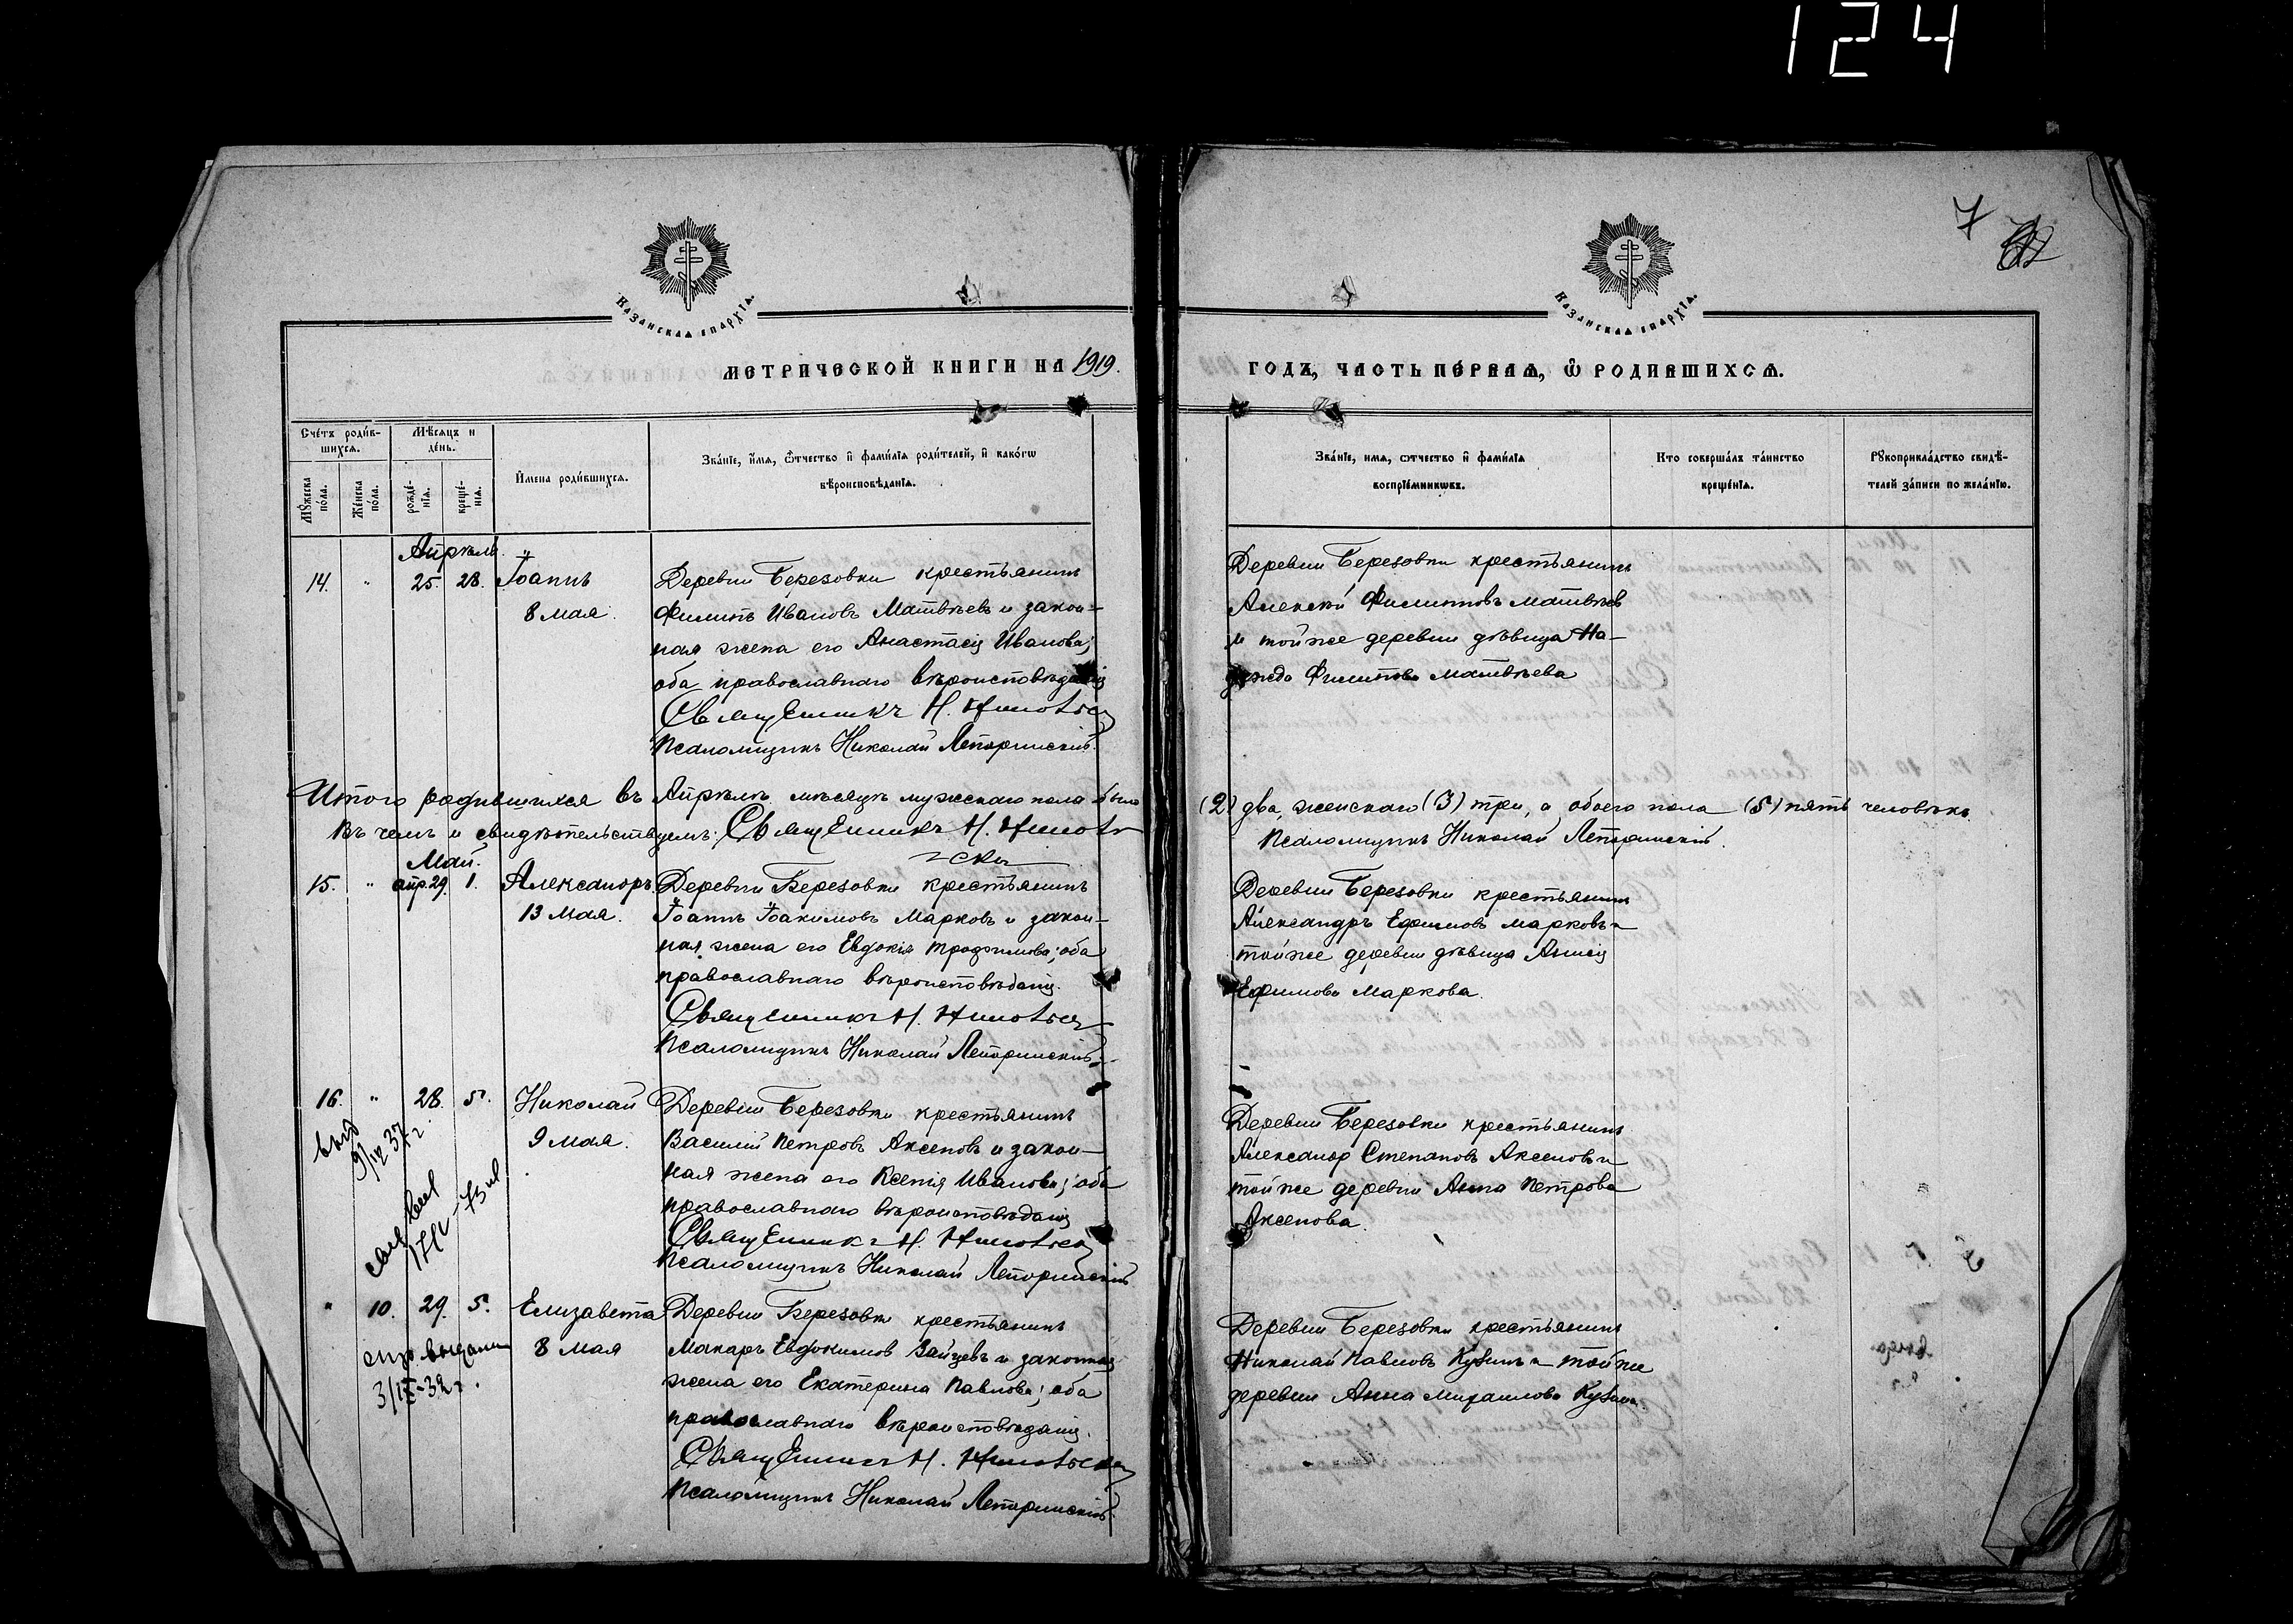 124
7
Казанская епархїя.
Казанская епархїя.
МЕТРИЧЕСКОЙ КНИГИ НА 1919.
ГОДЪ, ЧАСТЬ ПЕРВАЯ, Ѿ РОДИВШИХСЯ.
Счéтъ роди́вшихся.
Мѣсяцъ и дéнь.
Мꙋ́жеска пóла.
Жéнска пóла.
рождéнїя.
крещéнїя.
И́мена роди́вшихся.
Зва́нїе, и́мя, ѻ́тчество и҆ фами́лїѧ роди́телей, и҆ како́гѡ
вѣроисповѣ́данїѧ.
Зва́нїе, имя, ѻтчество и҆ фами́лїѧ
воспрїе́мникѡвъ.
Кто соверша́лъ та́инство
креще́нїѧ.
Рꙋкоприкла́дство свидѣ́-
телей за́писи по жела́нїю.
Апрѣль
14. " 25. 28. Іоаннъ
8 мая.
Деревни Березовки крестьянинъ
Филиппъ Ивановъ Матвѣевъ и закон-
ная жена его Анастасія Иванова;
оба православнаго вѣроисповѣданія
Священникъ Н.
Псаломщикъ Николай Лепоринскій.
Деревни Березовки крестьянинъ
Алексѣй Филипповъ Матвѣев
и той же деревни дѣвица На-
дежда Филиппова Матвѣева
Итого родившихся въ Апрѣлѣ мѣсяцѣ мужскаго пола было (2) два, женскаго (3) три, а обоего пола (5) пять человѣкъ.
Въ чемъ и свидѣтельствуемъ: Священникъ Н.
Псаломщикъ Николай Лепоринскій.
Май.
15. " апр. 29. 1. Александръ
13 мая.
Деревни Березовки крестьянинъ
Іоаннъ Іоакимовъ Марковъ и закон-
ная жена его Евдокія Трофимова; оба
православнаго вѣроисповѣданія.
Священникъ Н.
Псаломщикъ Николай Лепоринскій.
Деревни Березовки крестьянинъ
Александръ Ефимовъ Марковъ и
той же деревни дѣвица Анисія
Ефимова Маркова.
16. " 28. 5. Николай
9 мая.
Деревни Березовки крестьянинъ
Василій Петровъ Аксеновъ и закон-
ная жена его Ксенія Иванова; оба
православнаго вѣроисповѣданія
Священникъ Н.
Псаломщикъ Николай Лепоринскій
Деревни Березовки крестьянинъ
Александр Степановъ Аксеновъ и
той же деревни Анна Петрова
Аксенова.
" 10. 29. 5. Елизавета
8 мая
Деревни Березовки крестьянинъ
Макаръ Евдокимов Зайцевъ и законная
жена его Екатерина Павлова; оба
православнаго вѣроисповѣданія.
Священникъ Н.
Псаломщикъ Николай Лепоринскій.
Деревни Березовки крестьянинъ
Николай Павловъ Кузинъ и той же
деревни Анна Михаилова Кузина